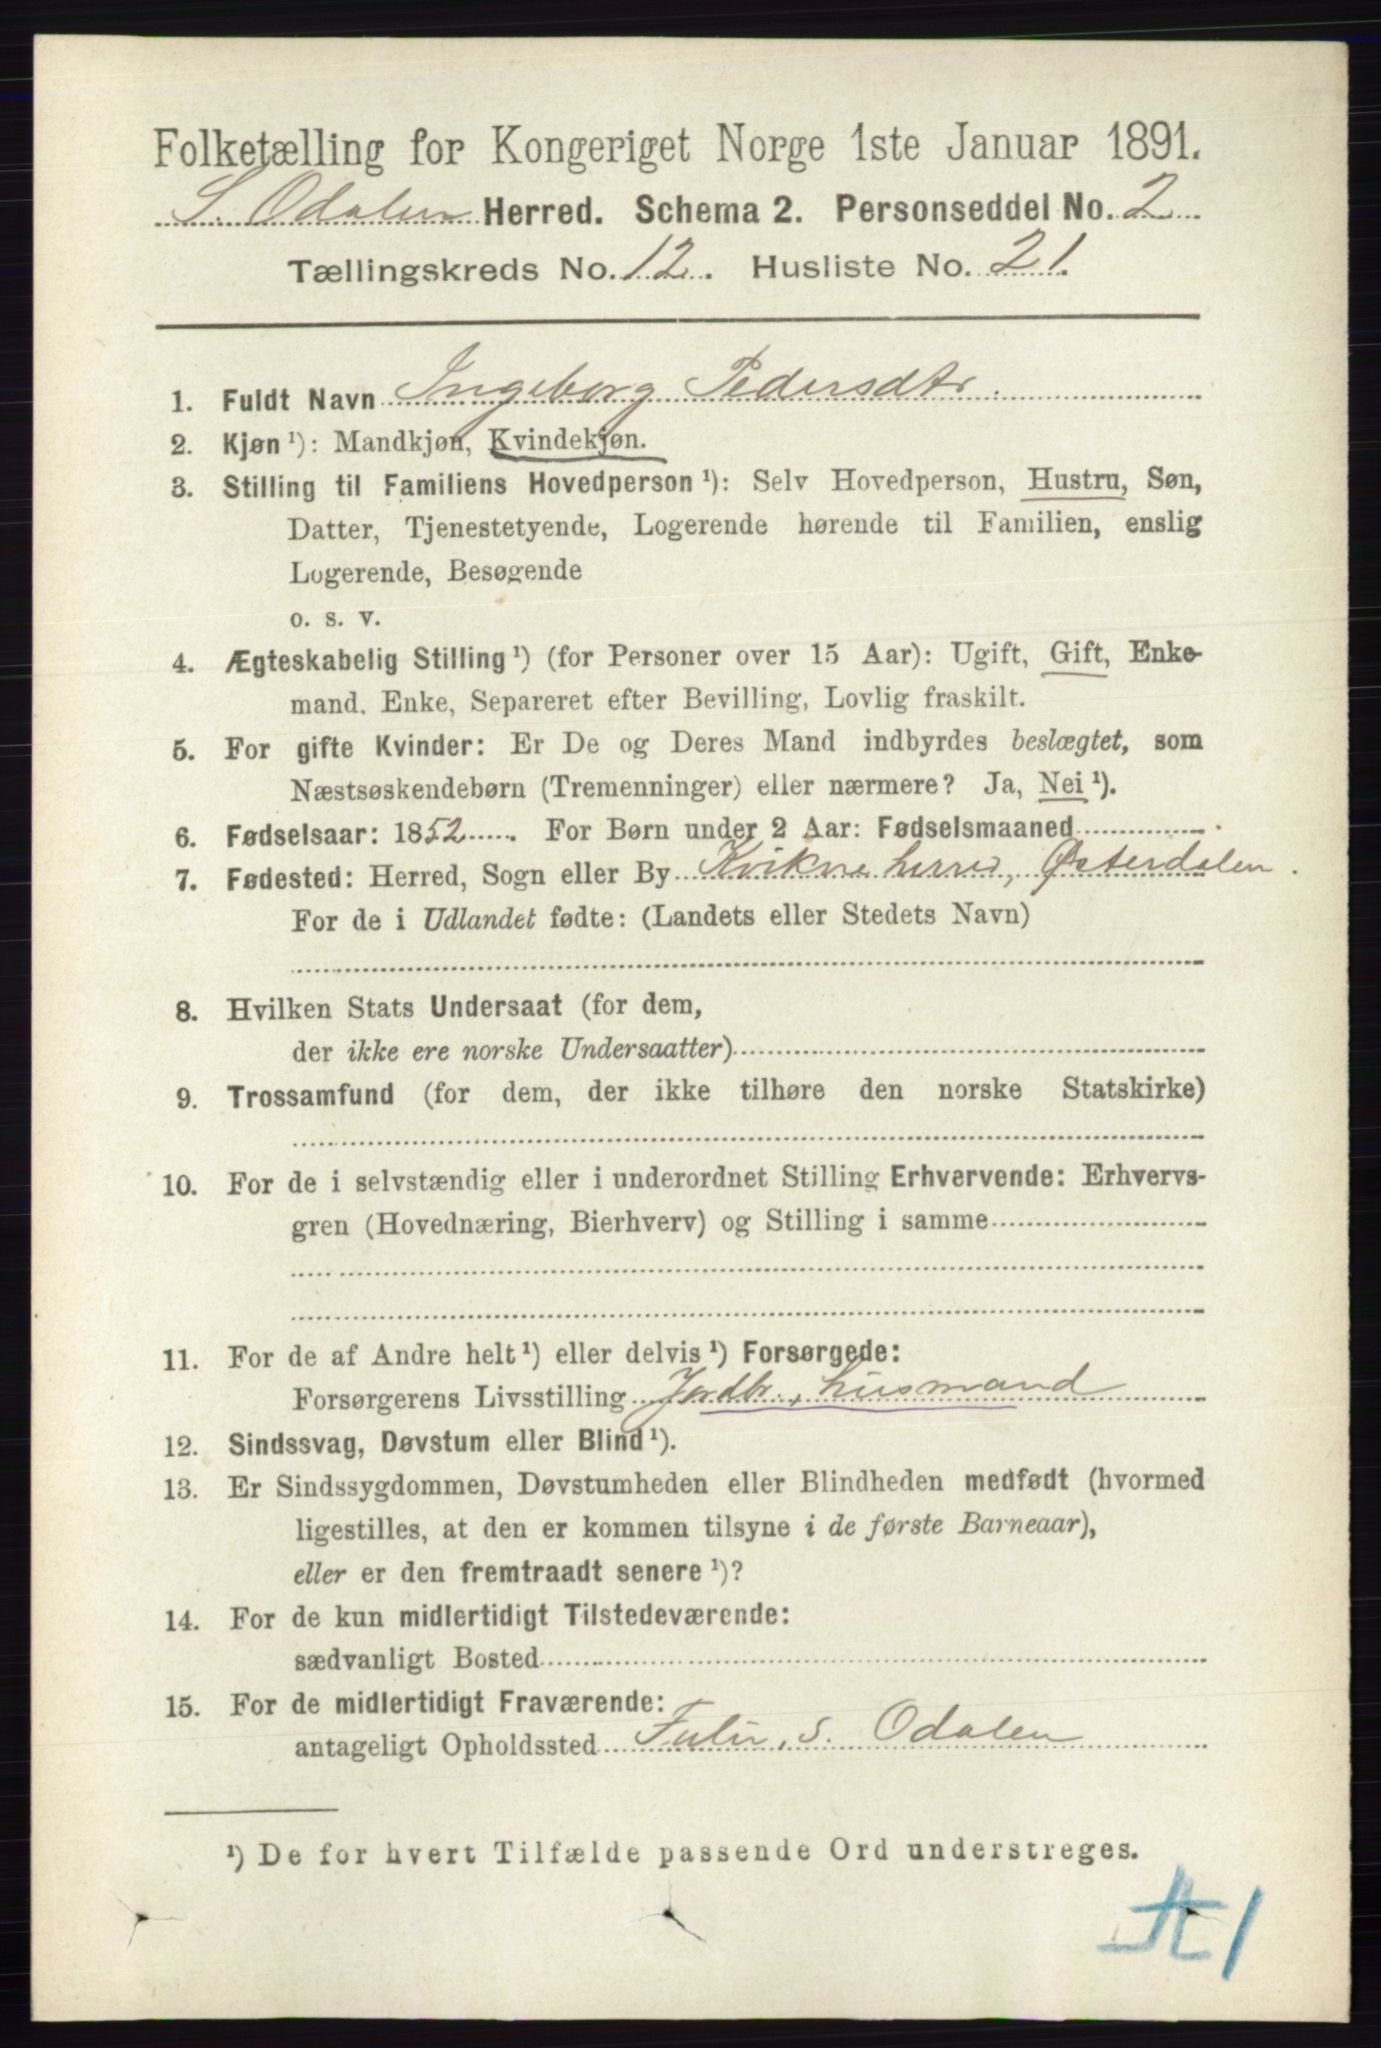 Folketælling for Kongeriget Norge 1ste Januar 1891.
S. Odalen Herred. Schema 2. Personseddel No. 2
Tællingskreds No. 12. Husliste No. 21.
1. Fuldt Navn Ingeborg Pedersdtr.
2. Kjøn ¹): Mandkjøn, Kvindekjøn.
3. Stilling til Familiens Hovedperson ¹): Selv Hovedperson, Hustru, Søn,
Datter, Tjenestetyende, Logerende hørende til Familien, enslig
Logerende, Besøgende
o. s. v.
4. Ægteskabelig Stilling ¹) (for Personer over 15 Aar): Ugift, Gift, Enke-
mand, Enke, Separeret efter Bevilling, Lovlig fraskilt.
5. For gifte Kvinder: Er De og Deres Mand indbyrdes beslægtet, som
Næstsøskendebørn (Tremenninger) eller nærmere? Ja, Nei ¹).
6. Fødselsaar: 1852. For Børn under 2 Aar: Fødselsmaaned
7. Fødested: Herred, Sogn eller By Kvikne herred, Østerdalen.
For de i Udlandet fødte: (Landets eller Stedets Navn)
8. Hvilken Stats Undersaat (for dem,
der ikke ere norske Undersaatter)
9. Trossamfund (for dem, der ikke tilhøre den norske Statskirke)
10. For de i selvstændig eller i underordnet Stilling Erhvervende: Erhvervs-
gren (Hovednæring, Bierhverv) og Stilling i samme
11. For de af Andre helt ¹) eller delvis ¹) Forsørgede:
Forsørgerens Livsstilling Jordbr., husmand
12. Sindssvag, Døvstum eller Blind ¹).
13. Er Sindssygdommen, Døvstumheden eller Blindheden medfødt (hvormed
ligestilles, at den er kommen tilsyne i de første Barneaar),
eller er den fremtraadt senere ¹)?
14. For de kun midlertidigt Tilstedeværende:
sædvanligt Bosted
15. For de midlertidigt Fraværende:
antageligt Opholdssted S. Odalen
¹) De for hvert Tilfælde passende Ord understreges.